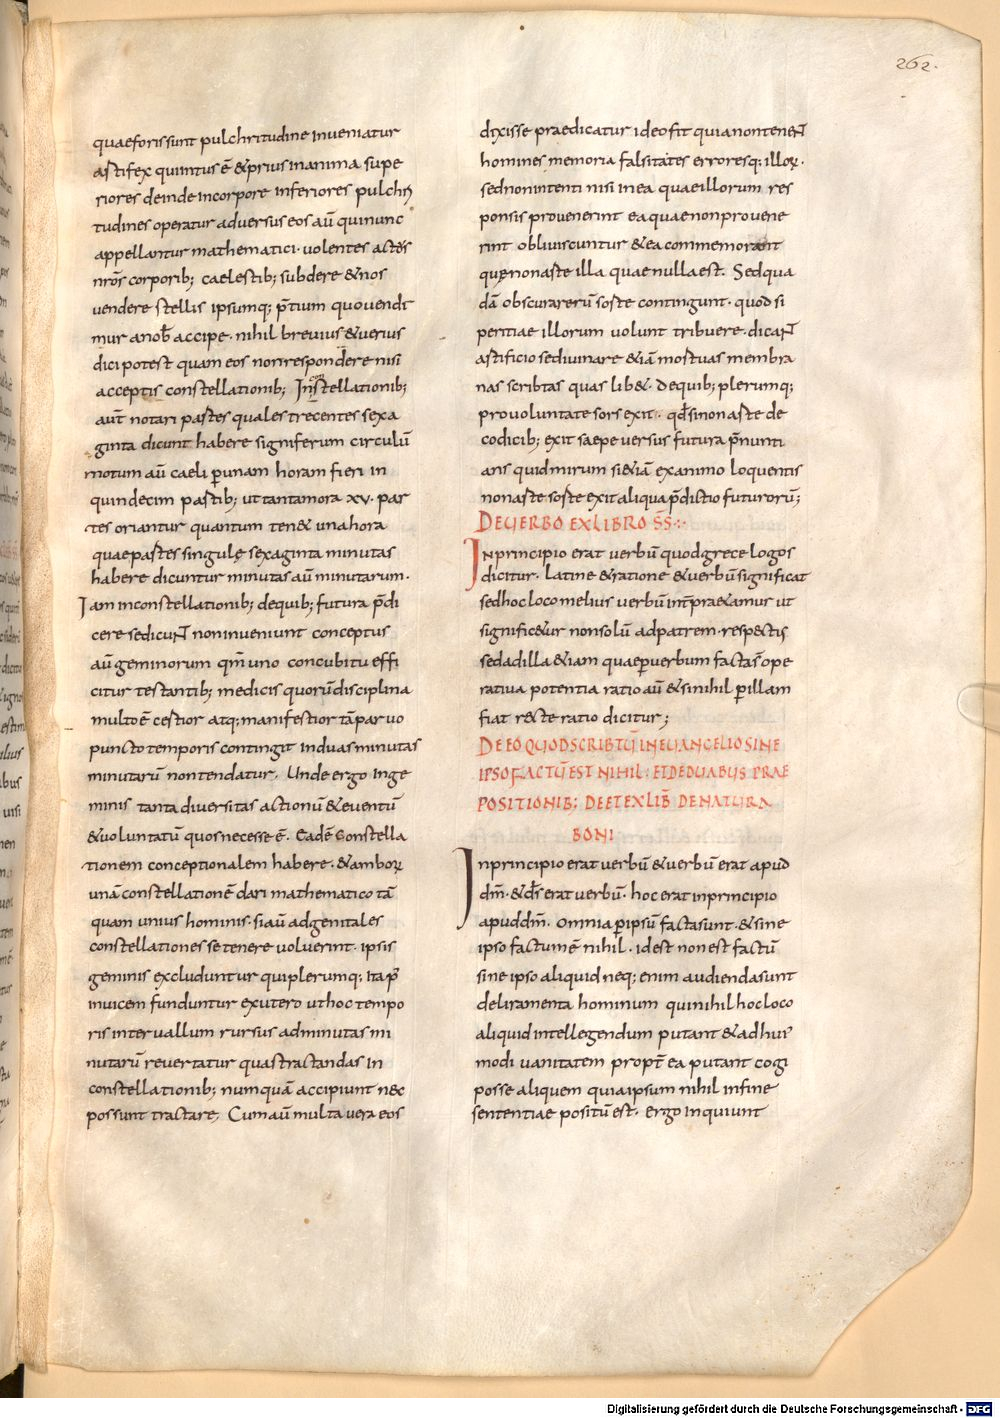 262.
quaeforis sunt pulchritudine inveniatur
artifex qui intus ē & prius in anima supe
riores deinde incorpore inferiores pulchri
tudines operatur adversus eos aū qui nunc
appellantur mathematici · volentes actos
nrōs corporib; caelestib; subdere & nos
vendere stellis ipsumq; p̄tium quo vendi
mur a nob̄ accipe · nihil brevius & verius
dici potest quam eos non respondere nisi
acceptis constellationib; In constellationib;
aūt notari partes quales trecentes sexa
ginta dicunt habere signiferum circulū
motum aū caeli p̱ unam horam fieri in
quindecim partib; ut tanta mora xv · par
tes oriantur quantum ten& una hora
quae partes singulę sexaginta minutas
habere dicuntur minutas aū minutarum ·
Iam in constellationib; de quib; futura p̄di
cere se dicunt non inveniunt conceptus
aū geminorum qm̄ uno concubitu effi
citur testantib; medicis quorū disciplina
multo ē certior atq; manifestior tā parvo
puncto temporis contingit in duas minutas
minutarū non tendatur · Unde ergo in ge
minis tanta diversitas actionū & eventū
& voluntatū quos necesse ē · Eadē constella
tionem conceptionalem habere · & amborꝝ
unā constellationē dari mathematico tā
quam unius hominis · si aū ad genitales
constellationes se tenere voluerint · ipsis
geminis excluduntur qui plerumq; ita p̱
invicem funduntur ex utero ut hoc tempo
ris intervallum rursus ad minutas mi
nutarū revertatur quas tractandas in
constellationib; numquā accipiunt nec
possunt tractare; Cum aū multa vera eos
dixisse praedicatur ideo fit quia non tenent
homines memoria falsitates erroresq; illoꝝ ·
sed non intenti nisi in ea quae illorum res
ponsis provenerint ea quae non provene
rint obliviscuntur & ea commemorant
quę non arte illa quae nulla est · Sed qua
dā obscura rerū sorte contingunt · quod si
peritiae illorum volunt tribuere · dicant
artificio se divinare &iā mortuas membra
nas scribtas quas lib& · de quib; plerumq;
pro voluntate sors exit · qd̄ si non arte de
codicib; exit saepe versus futura p̄nunti
ans quid mirum si &iā ex animo loquentis
non arte sorte exit aliqua p̄dictio futurorū;
DE VERBO EX LIBRO S̄S̄ :·
In principio erat verbū quod grece logos
dicitur · latine & ratione & verbū significat
sed hoc loco melius verbū int̄pr&amur ut
signific&ur non solū ad patrem respectis
sed ad illa &iam quae p̱ verbum facta s̄ ope
rativa potentia ratio aū & si nihil p̱ illam
fiat recte ratio dicitur;
DE EO QUOD SCRIBTŪ IN EVANGELIO SINE
IPSO FACTŪ EST NIHIL : ET DE DUABUS PRAE
POSITIONIB; DE ET EX LIB̄ DE NATURA
BONI
In principio erat verbū & verbū erat apud
dm̄ · & ds̄ erat verbū · hoc erat in principio
apud dm̄ · Omnia p̱ ipsū facta sunt · & sine
ipso factum ē nihil · id est non est factū
sine ipso aliquid neq; enim audienda sunt
deliramenta hominum qui nihil hoc loco
aliquid intellegendum putant & ad hui'
modi vanitatem propt̄ ea putant cogi
posse aliquem quia ipsum nihil in fine
sententiae positū est · ergo inquiunt
Digitalisierung gefördert durch die Deutsche Forschungsgemeinschaft - DFG